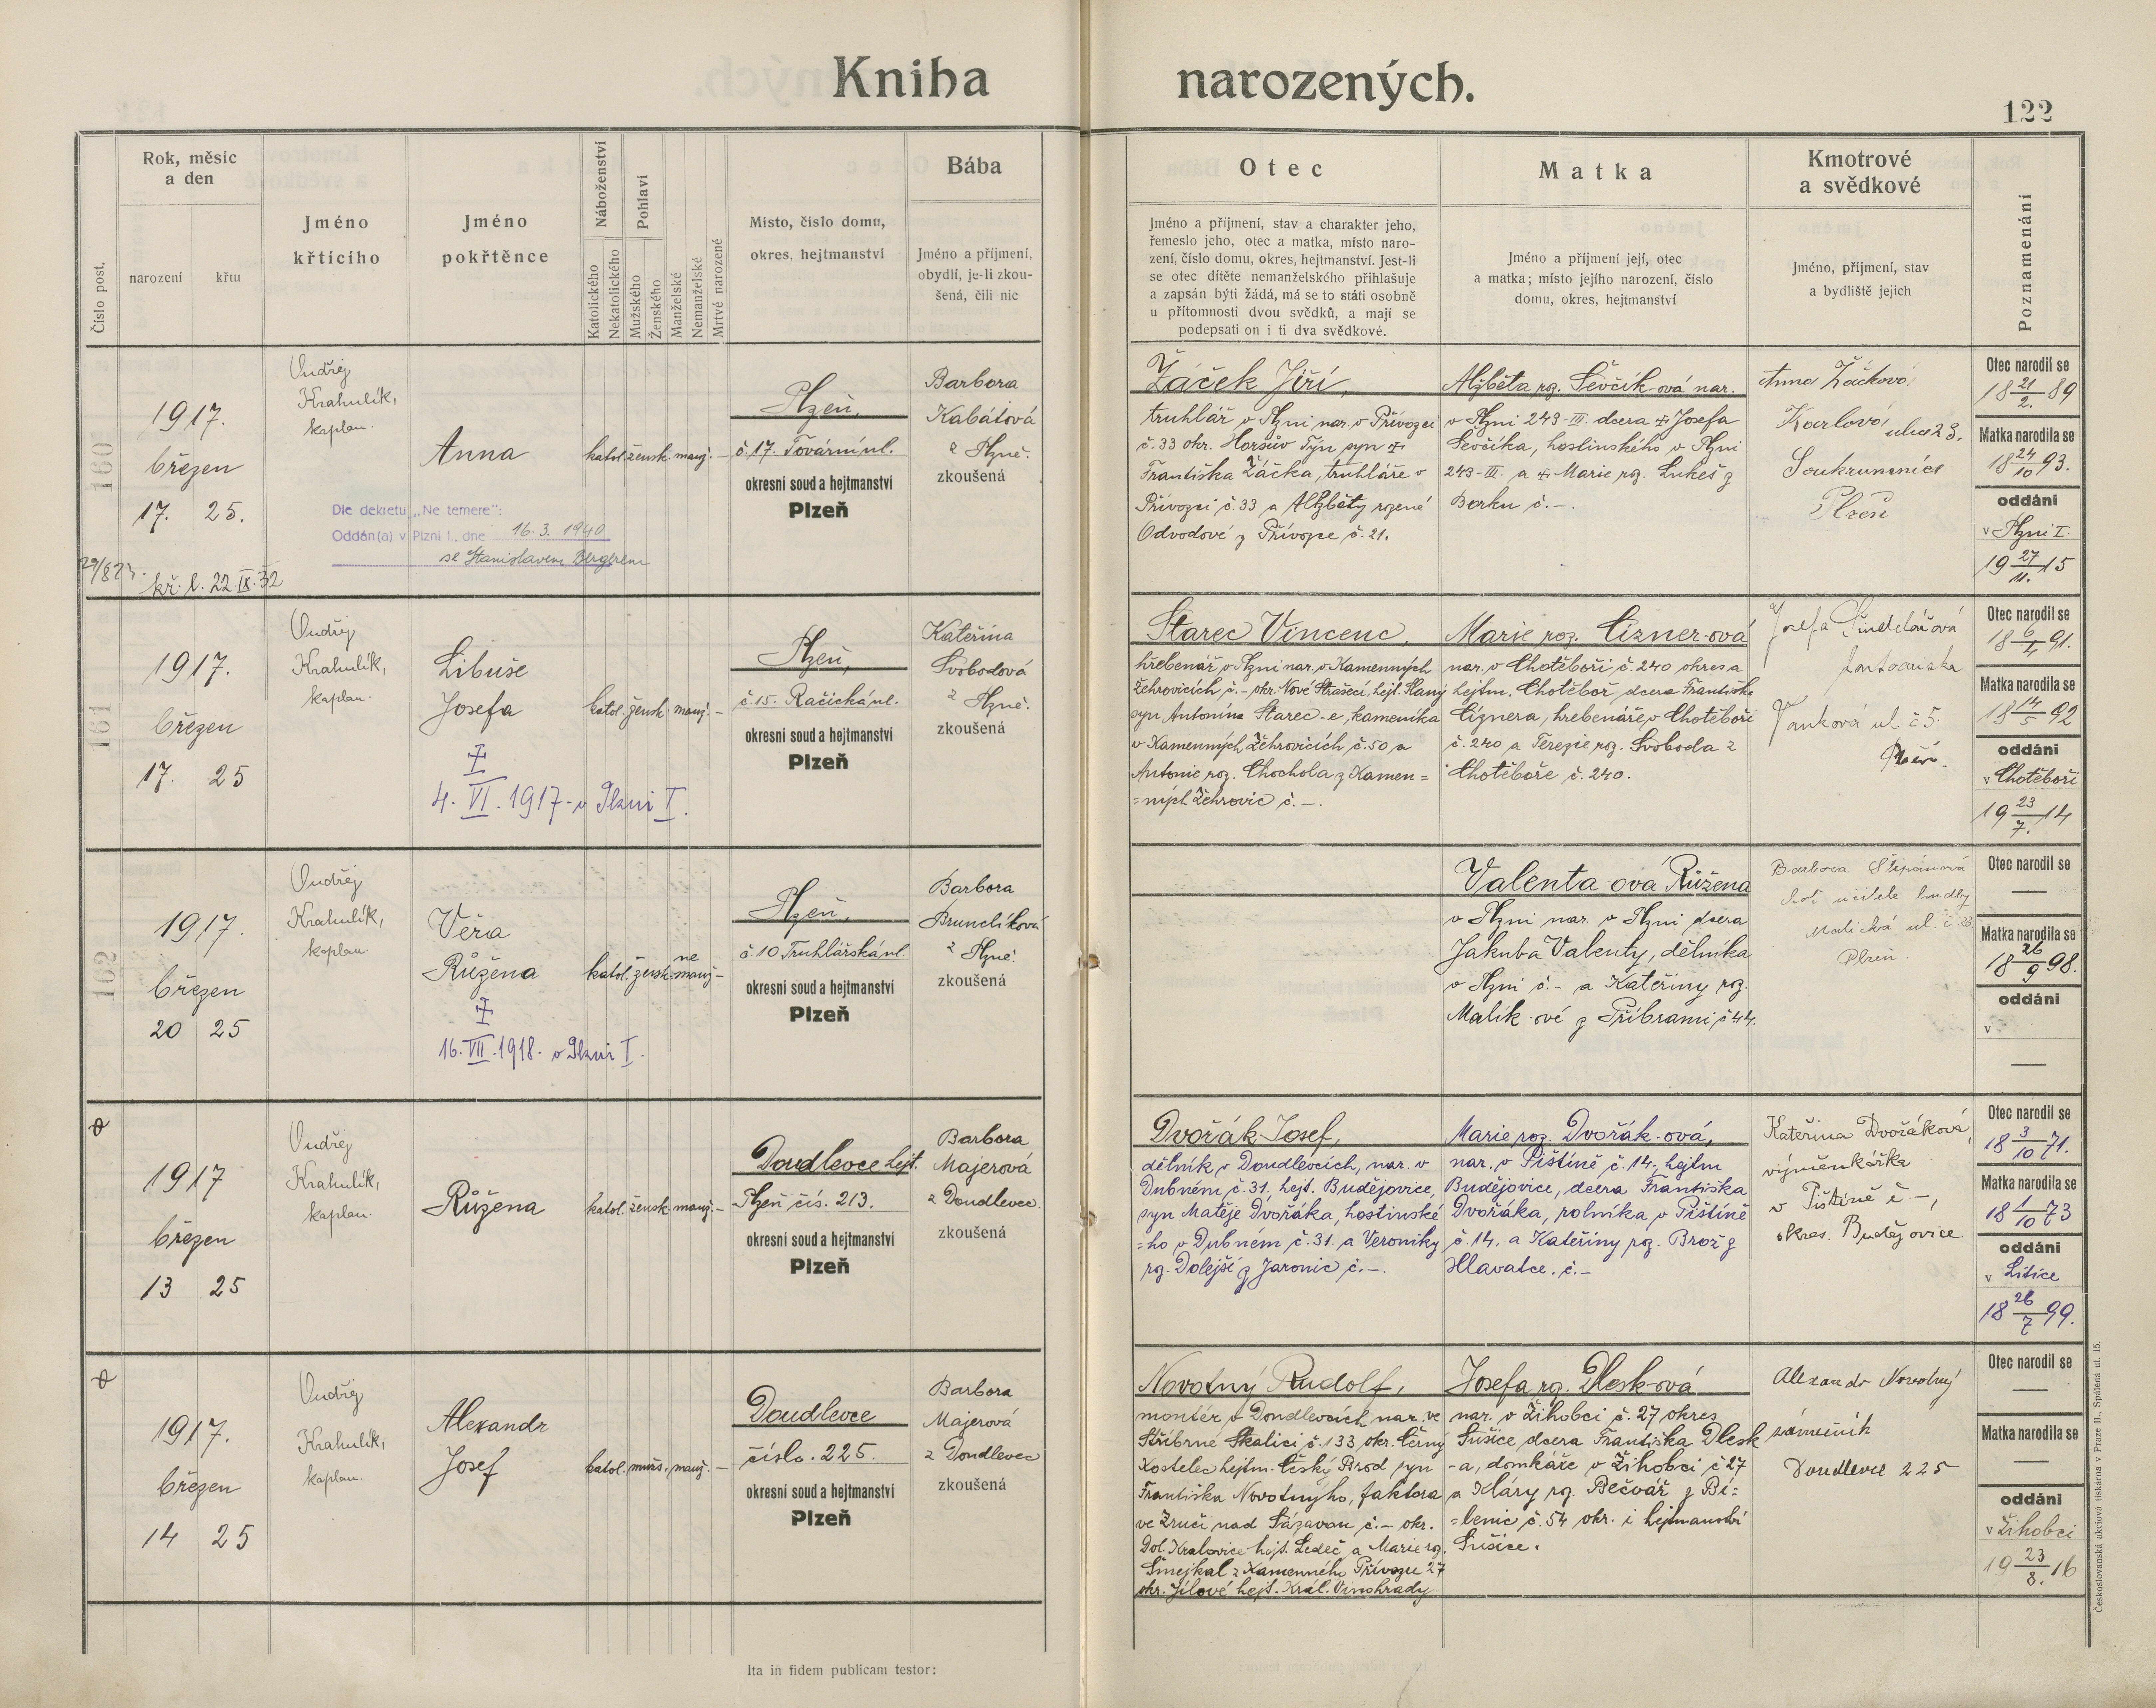 Kniha narozených.
122
Číslo post.
Rok, měsíc
a den
narození
křtu
Jméno
křtícího
Jméno
pokřtěnce
Náboženství
Katolického
Nekatolického
Pohlaví
Mužského
Ženského
Manželské
Nemanželské
Mrtvě narozené
Místo, číslo domu,
okres, hejtmanství
Bába
Jméno a příjmení,
obydlí, je-li zkou-
šená, čili nic
Otec
Jméno a příjmení, stav a charakter jeho,
řemeslo jeho, otec a matka, místo naro-
zení, číslo domu, okres, hejtmanství. Jest-li
se otec dítěte nemanželského přihlašuje
a zapsán býti žádá, má se to státi osobně
u přítomnosti dvou svědků, a mají se
podepsati on i ti dva svědkové.
Matka
Jméno a příjmení její, otec
a matka; místo jejího narození, číslo
domu, okres, hejtmanství
Kmotrové
a svědkové
Jméno, příjmení, stav
a bydliště jejich
Poznamenání
160
1917.
březen
17. 25.
kř. l. 22.IX.32
Ondřej
Krahulík,
kaplan.
Anna
Dle dekretu „Ne temere":
Oddán(a) v Plzni I., dne 16.3.1940
se Stanislavem Bergrem
katol. žensk. manž. –
Plzeň,
č. 17. Tovární ul.
okresní soud a hejtmanství
Plzeň
Barbora
Kabátová
z Plzně.
zkoušená
Žáček Jiří,
truhlář v Plzni nar. v Přívozci
č. 33 okr. Horšův Týn syn ☩
Františka Žáčka, truhláře v
Přívozci č. 33 a Alžběty rozené
Odvodové z Přívozce č. 21.
Alžběta roz. Ševčík-ová nar.
v Plzni 243-III. dcera ☩ Josefa
Ševčíka, hostinského v Plzni
243-III. a ☩ Marie roz. Lukeš z
Borku č. –.
Anna Žáčková
Karlova ulice 23.
Soukromnice
Plzeň
Otec narodil se
18 21/2. 89
Matka narodila se
18 24/10 93.
oddáni
v Plzni I.
19 27/11. 15
161
1917.
březen
17. 25
Ondřej
Krahulík,
kaplan.
Libuše
Josefa
☩
4. VI. 1917 - v Plzni I.
katol. žensk. manž. –
Plzeň,
č. 15. Račická ul.
okresní soud a hejtmanství
Plzeň
Kateřina
Svobodová
z Plzně.
zkoušená
Starec Vincenc,
hřebenář v Plzni nar. v Kamenných
Žehrovicích č. – okr. Nové Strašecí, hejt. Slaný
syn Antonína Starec-e, kameníka
v Kamenných Žehrovicích č. 50 a
Antonie roz. Chochola z Kamen=
=ných Žehrovic č. –.
Marie roz. Cizner-ová
nar. v Chotěboři č. 240 okres a
hejtm. Chotěboř, dcera Františka
Ciznera, hřebenáře v Chotěboři
č. 240 a Terezie roz. Svoboda z
Chotěboře č. 240.
Josefa Šindelářová
Vaňková ul. č 5.
Plzeň
Otec narodil se
91.
Matka narodila se
18 14/5 92
oddáni
v Chotěboři
19 23/7. 14
162
1917.
březen
20 25
Ondřej
Krahulík,
kaplan.
Věra
Růžena
☩
16. VII. 1918 - v Plzni I.
ne
katol. žensk. manž –
Plzeň,
č. 10 Truhlářská ul.
okresní soud a hejtmanství
Plzeň
Barbora
Brunclíková
z Plzně.
zkoušená
Valenta-ová Růžena
v Plzni nar. v Plzni dcera
Jakuba Valenty, dělníka
v Plzni č. – a Kateřiny roz.
Malík-ové z Příbrami č 44.
Barbora Štěpánová
choť učitele hudby
Malická ul. č.
Plzeň.
Otec narodil se
—
Matka narodila se
18 26/9 98.
oddáni
v
—
1917
březen
13 25
Ondřej
Krahulík,
kaplan.
Růžena
katol. žensk. manž. –
Doudlevce hejt.
Plzeň čís. 213.
okresní soud a hejtmanství
Plzeň
Barbora
Majerová
z Doudlevec.
zkoušená
Dvořák Josef,
dělník v Doudlevcích, nar. v
Dubném č. 31, hejt. Budějovice,
syn Matěje Dvořáka, hostinské
=ho v Dubném č. 31. a Veroniky
rz. Dolejší z Jaronic č. –.
Marie roz. Dvořák-ová,
nar. v Pištíně č. 14., hejtm
Budějovice, dcera Františka
Dvořáka, rolníka v Pištíně
č. 14. a Kateřiny rz. Brož z
Hlavatce. č. –
Kateřina Dvořáková,
výměnkářka
v Pištíně č –,
okres. Budějovice.
Otec narodil se
18 3/10 71.
Matka narodila se
18 1/10 73
oddáni
v Litice
18 26/7 99.
1917.
březen
14 25
Ondřej
Krahulík,
kaplan.
Alexandr
Josef
katol. mužs. manž. –
Doudlevce
číslo. 225.
okresní soud a hejtmanství
Plzeň
Barbora
Majerová
z Doudlevec
zkoušená
Novotný Rudolf,
montér v Doudlevcích nar. ve
Stříbrné Skalici č. 133 okr. Černý
Kostelec hejtm. Český Brod syn
Františka Novotnýho, faktora
ve Zruči nad Sázavou č. – okr.
Dol. Kralovice hejt. Ledeč a Marie rz.
Šmejkal z Kamenného Přívozu 27
okr. Jílové hejt. Král. Vinohrady.
Josefa rz. Dlesk-ová
nar. v Žihobci č. 27 okres
Sušice dcera Františka Dlesk
-a, domkáře v Žihobci č 27
a Kláry rz. Pečvář z Bí=
=lenic č. 54 okr. i hejtmanství
Sušice.
Alexandr Novotný
zámečník
Doudlevce 225
Otec narodil se
—
Matka narodila se
—
oddáni
v Žihobci
19 23/8. 16
Ita in fidem publicam testor:
Československá akciová tiskárna v Praze II., Spálená ul. 15.